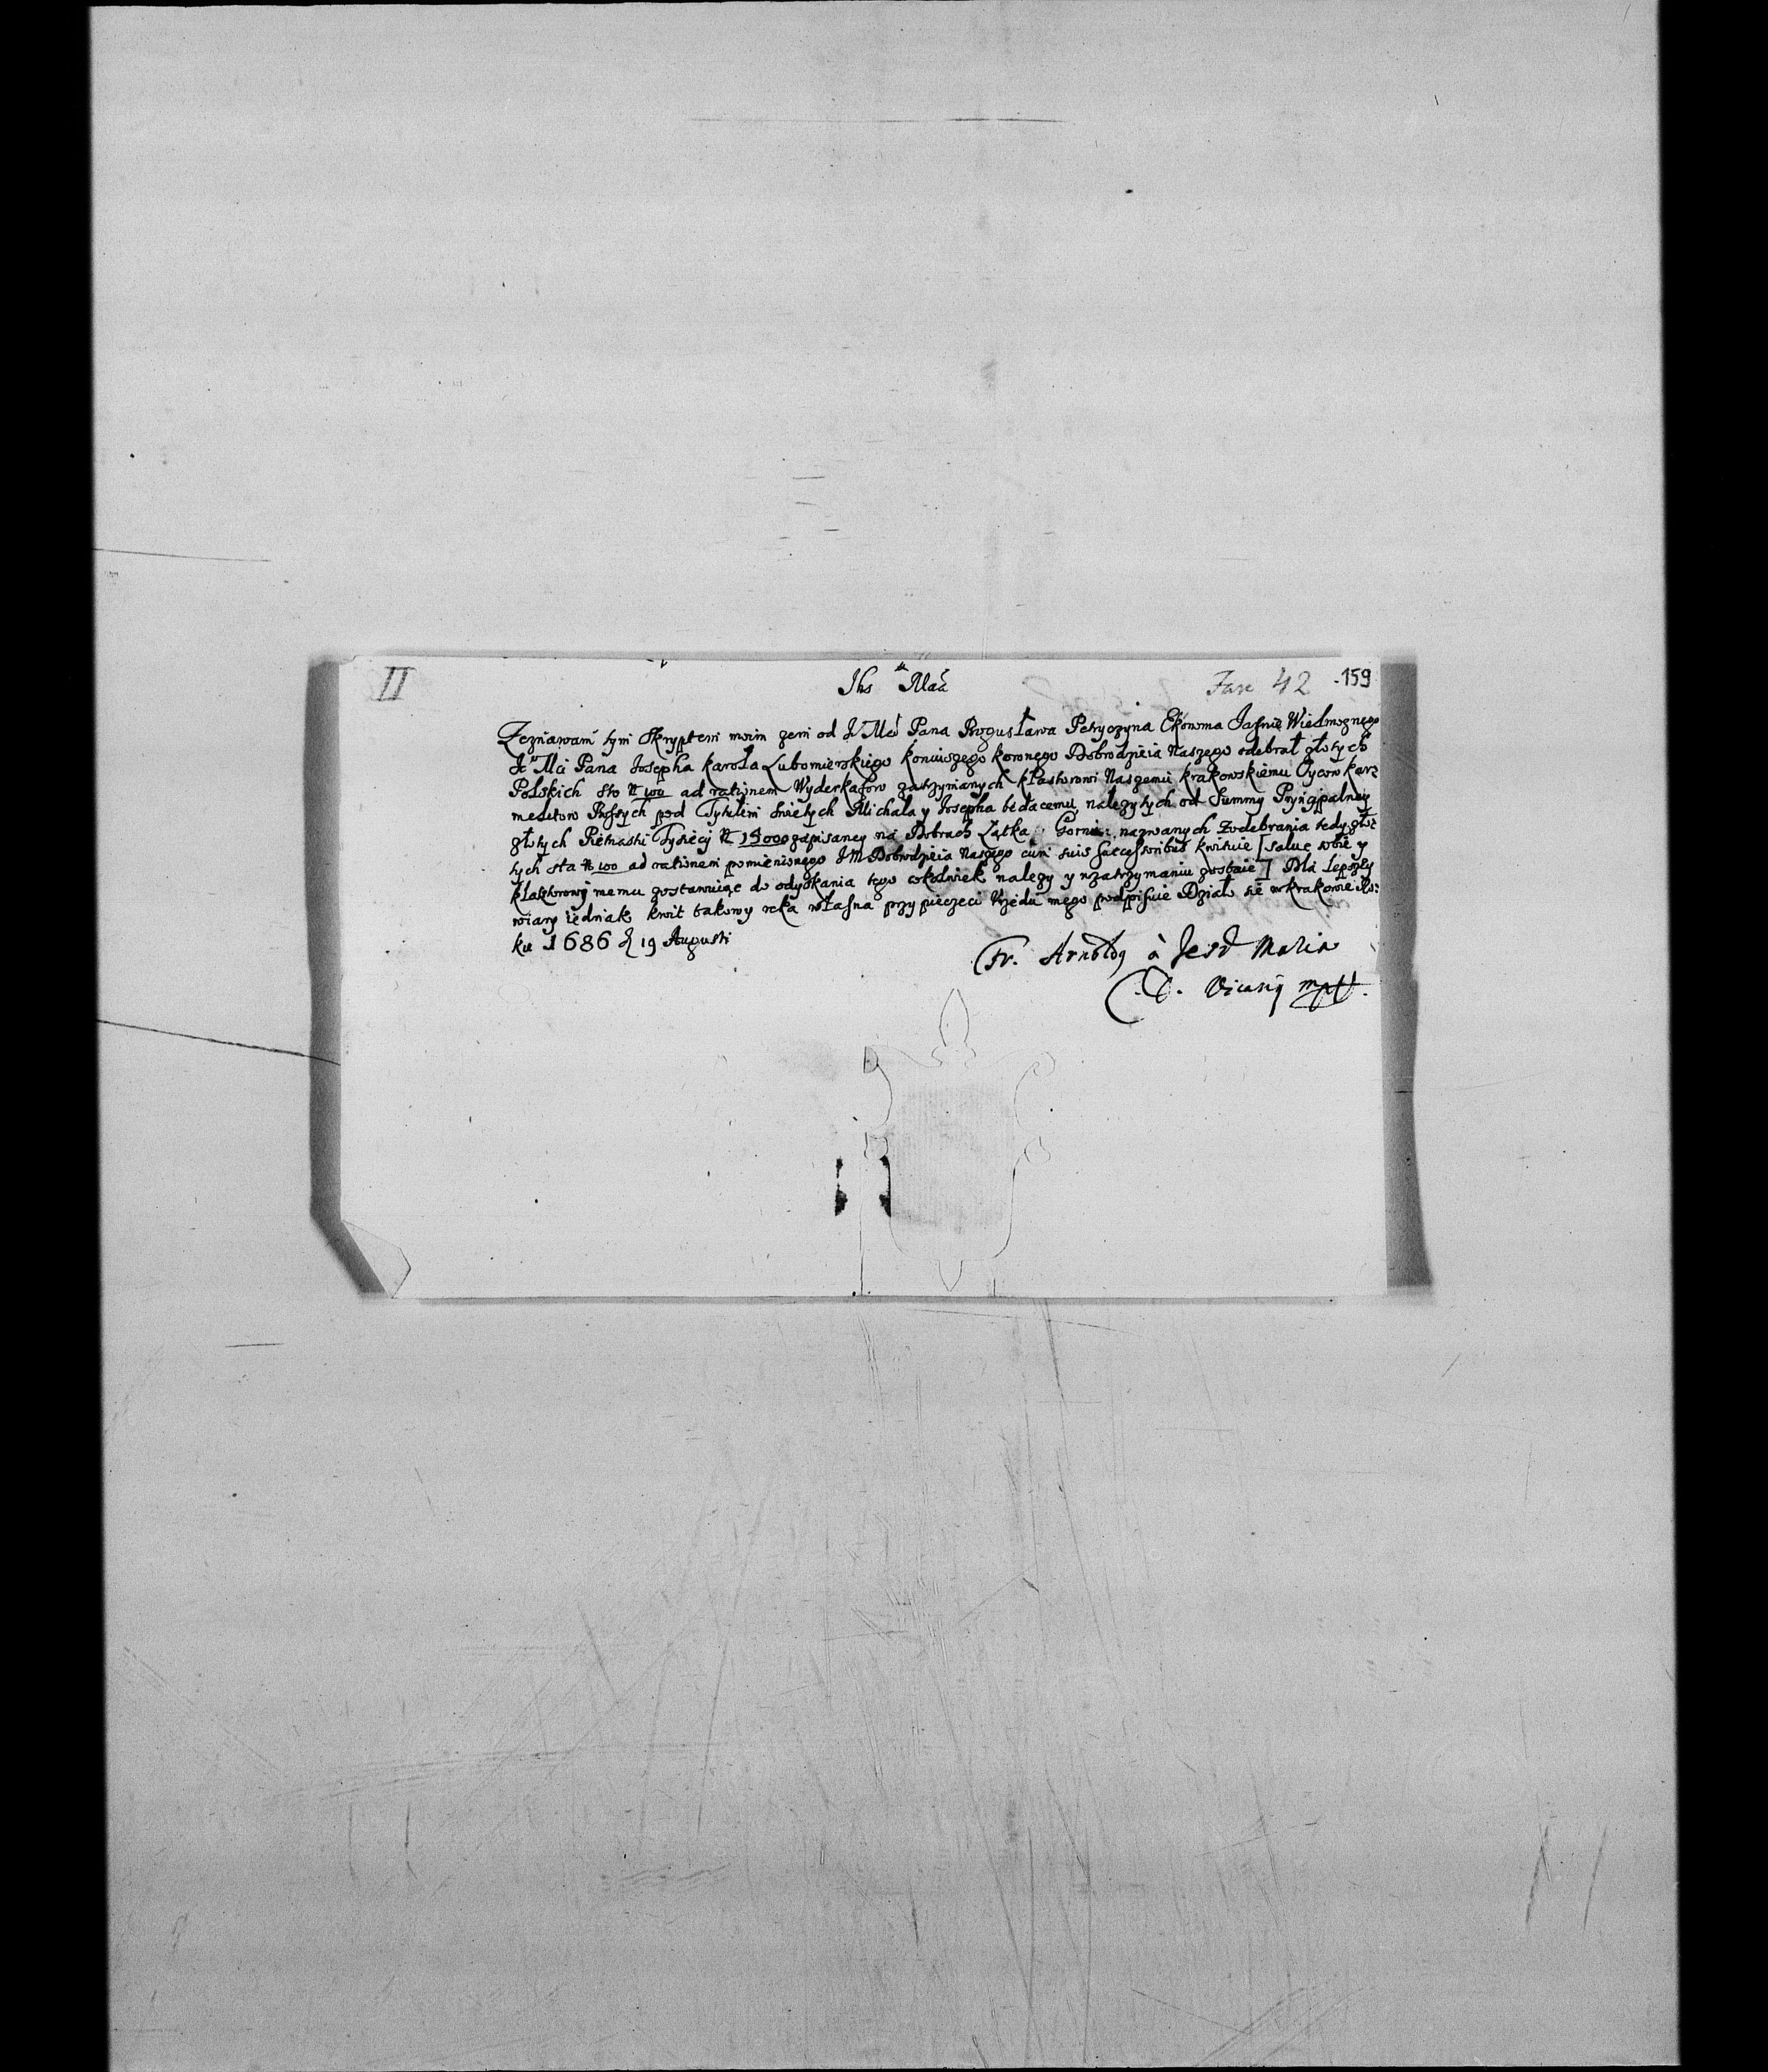 II
Jhs Maa
Fasc 42
159
Zeznawam tym Skryptem moim zem od Je Mci Pana Bogusława Petryczyna Ekonoma Jasnie Wielmoznego
Je Mci Pana Josepha Karola Lubomierskiego Koniuszego Koronnego Dobrodzieia Naszego odebrał złotych
Polskich sto tt 100 ad rationem Wyderkafow zatrzymanych Klasztorowi Naszemu Krakowskiemu Oycow Kar=
melitow Bossych pod Tytulem Swietych Michala y Josepha bedacemu nalezytych od Summy Pryncypalney
złotych Pietnastu Tysiecy tt 15000 zapisaney na Dobrach Łątka Gorna nazwanych Z odebrania tedy zło=
tych sta tt 100 ad rationem pomienionego JM Dobrodzieia Naszego cum suis Successoribus kwituie [salue sobie y
Klasztorowi memu zostawuiąc do odyskania tego cokolwiek nalezy y w zatrzymaniu zostaie] Dla lepszey
wiary iednak kwit takowy reka własna przy pieczeci Vrzedu mego podpisuie Działo sie w Krakowie Ro=
ku 1686 d 19 Augusti
Fr. Arnoldg à Jesu Maria
C. D. Vicarij mpp.